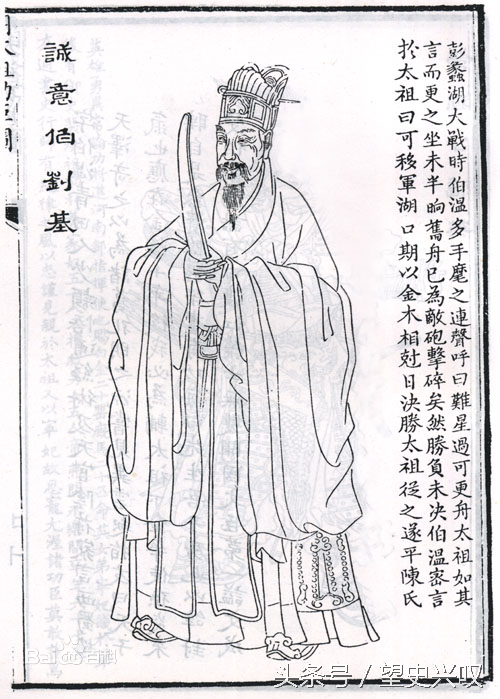 彭蠡湖大戰時伯溫多手麾之連聲呼曰難星過可更舟太祖如其
言而更之坐未半晌舊舟已為敵砲擊碎矣然勝負未決伯溫密言
扵太祖曰可移軍湖口期以金木相尅日決勝太祖從之遂平陳氏
誠意伯劉基
Baidu百科
头条号 / 望史兴叹